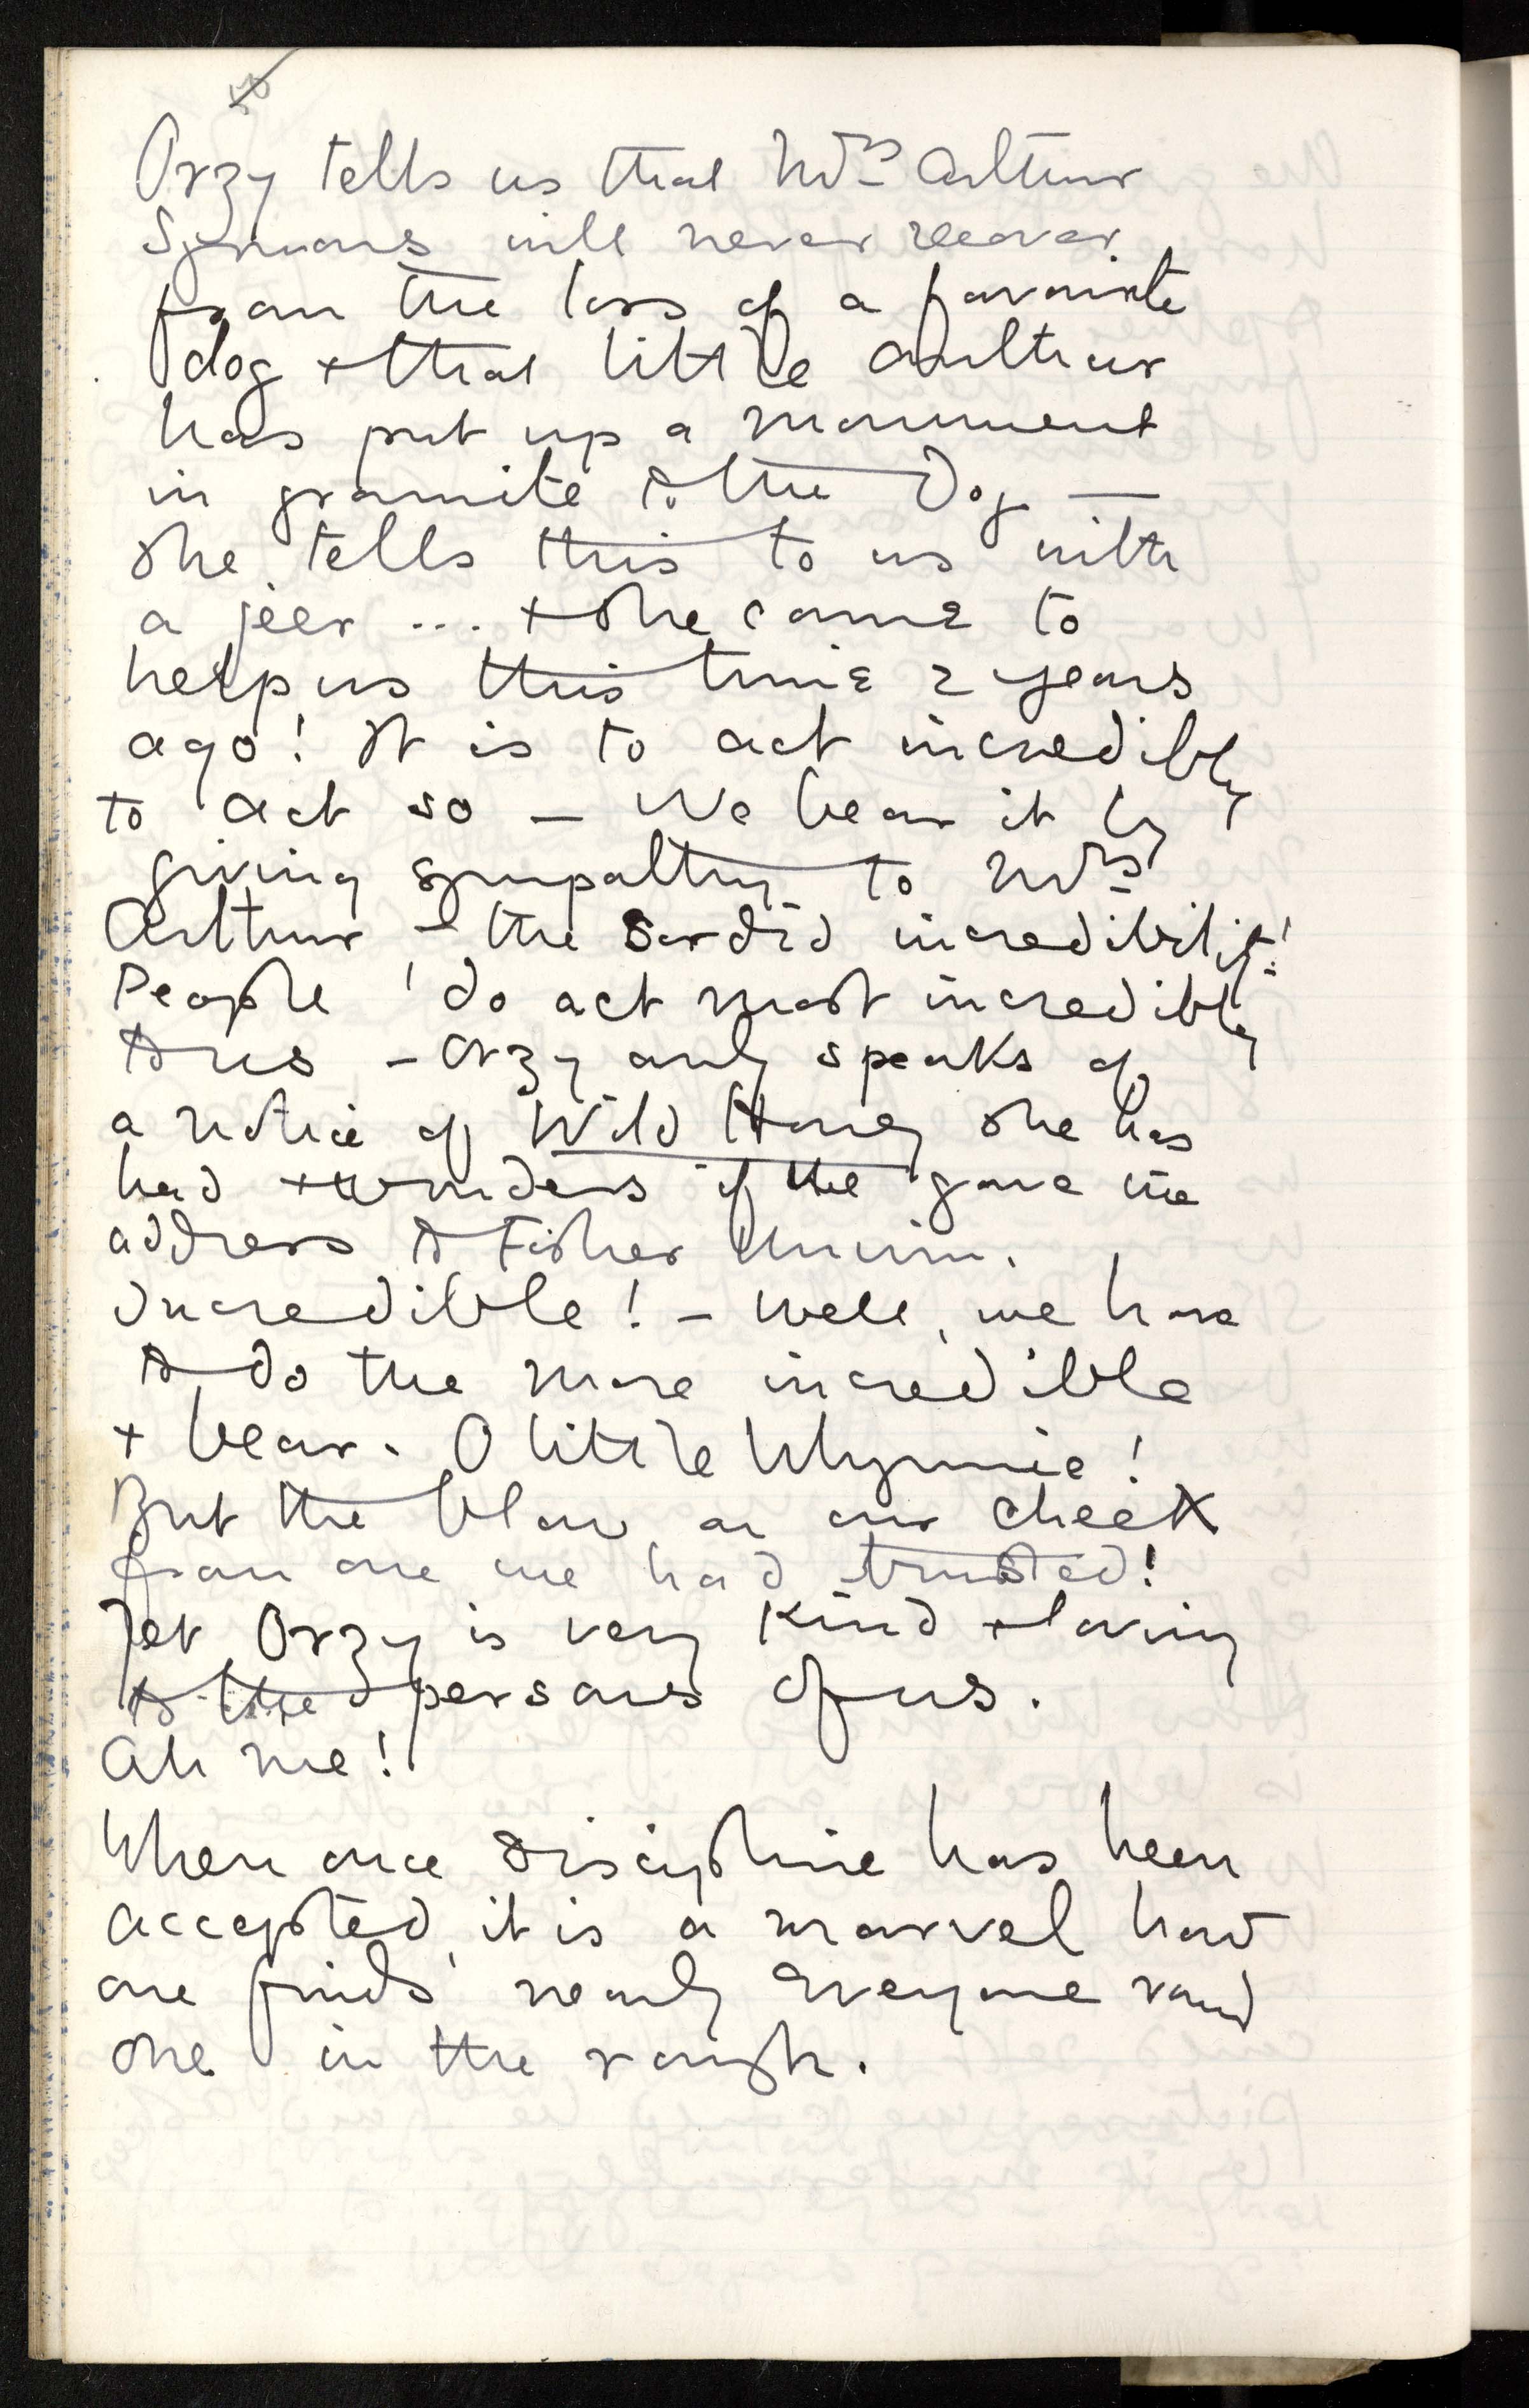 Orzy tells us that Mrs Arthur
Symons will never recover
from the loss of a favourite
dog + that little Arthur
has put up a monument
in granite to the Dog —
She tells this to us with
a jeer ... + she came to
help us this time 2 years
ago! It is to act incredibly
to act so — We bear it by
giving sympathy to Mrs
Arthur — the sordid incredibility!
People do act most incredibly
to us — Orzy only speaks of
a notice of Wild Honey she has
had + wonders if she gave the
address to Fisher Unwin.
Incredible! — Well, we have
to do the more incredible
+ bear. O little Whymie!
But the blow on our cheek
from one we had trusted!
Yet Orzy is very kind + loving
to the persons of us.
Ah me!
When once discipline has been
accepted, it is a marvel how
one finds nearly everyone round
one in the rough.